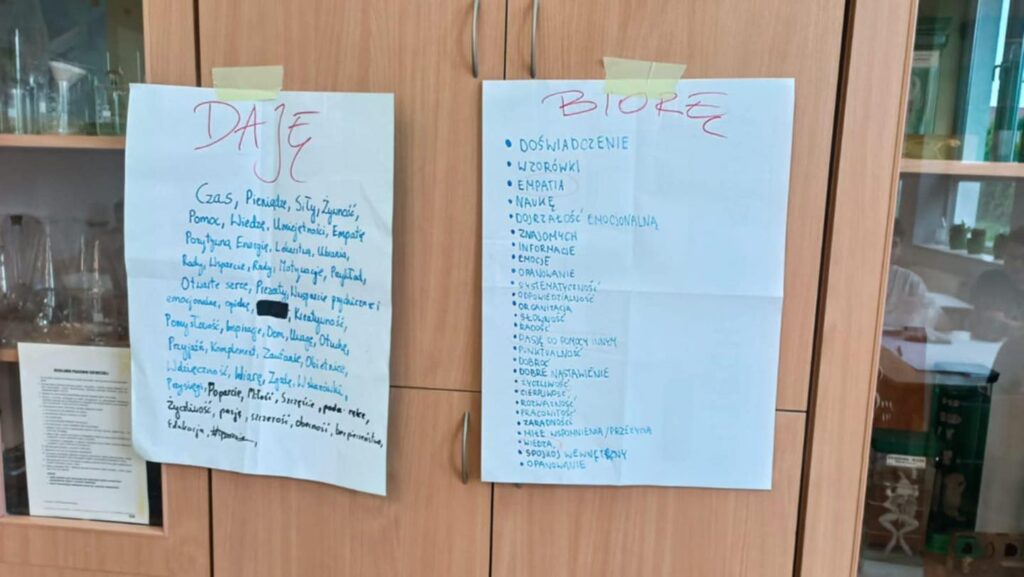 DAJĘ
Czas, Pieniądze, Siły, Żywność,
Pomoc, Wiedzę, Umiejętności, Empatię
Pozytywną Energię, Lekarstwa, Ubrania,
Rady, Wsparcie, Rady, Motywację, Przykład,
Otwarte serce, Prezenty, Wsparcie psychiczne i
emocjonalne, opiekę, Kreatywność,
Pomysłowość, Inspirację, Dom, Uwagę, Otuchę,
Przyjaźń, Komplement, Zaufanie, Obietnice,
Wdzięczność, Wiarę, Zgodę, Wskazówki,
Przysięgi, Poparcie, Miłość, Szczęście, poda
Życzliwość, pasję, szczerość, obecność, bezpieczeństwo,
Edukacja,
BIORĘ
• DOŚWIADCZENIE
• WZORÓWKI
• EMPATIA
• NAUKĘ
• DOJRZAŁOŚĆ EMOCJONALNĄ
• ZNAJOMYCH
• INFORMACJE
• EMOCJĘ
• OPANOWANIE
• SYSTEMATYCZNOŚĆ
• ODPOWIEDZIALNOŚĆ
• ORGANIZACJA
• SŁOWNOŚĆ
• RADOŚĆ
• PASJĘ DO POMOCY INNYM
• PUNKTUALNOŚĆ
• DOBROĆ
• DOBRE NASTAWIENIE
• ŻYCZLIWOŚĆ
• CIERPLIWOŚĆ
• ROZWAŻNOŚĆ
• PRACOWITOŚĆ
• ZARADNOŚĆ
• MIŁE WSPOMNIENIA/PRZEŻYCIA
• WIEDZA
• SPOKÓJ WEWNĘTRZNY
• OPANOWANIE